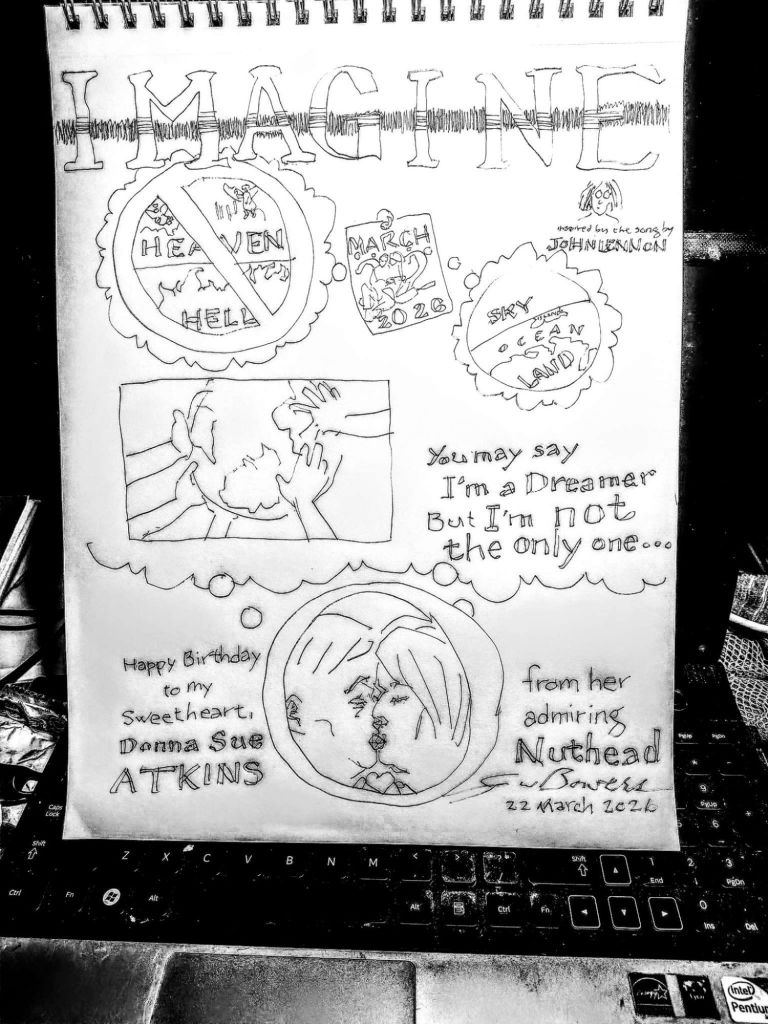 IMAGINE
HEAVEN
HELL
MARCH
2026
inspired by the song by
JOHN LENNON
SKY
OCEAN
LAND
You may say
I'm a Dreamer
But I'm not
the only one...
Happy Birthday
to my
Sweetheart,
Donna Sue
ATKINS
from her
admiring
Nuthead
Bowers
22 March 2026
Caps
Lock
Shift
Z X C V B N M < > ?
Shift
1 2 3
End
PgDn
Ctrl
Fn
Alt
Alt
Ctrl
Fn
0
Ins
Del
PgUp
PgDn
*
9
PgUp
6
+
intel
Pentium